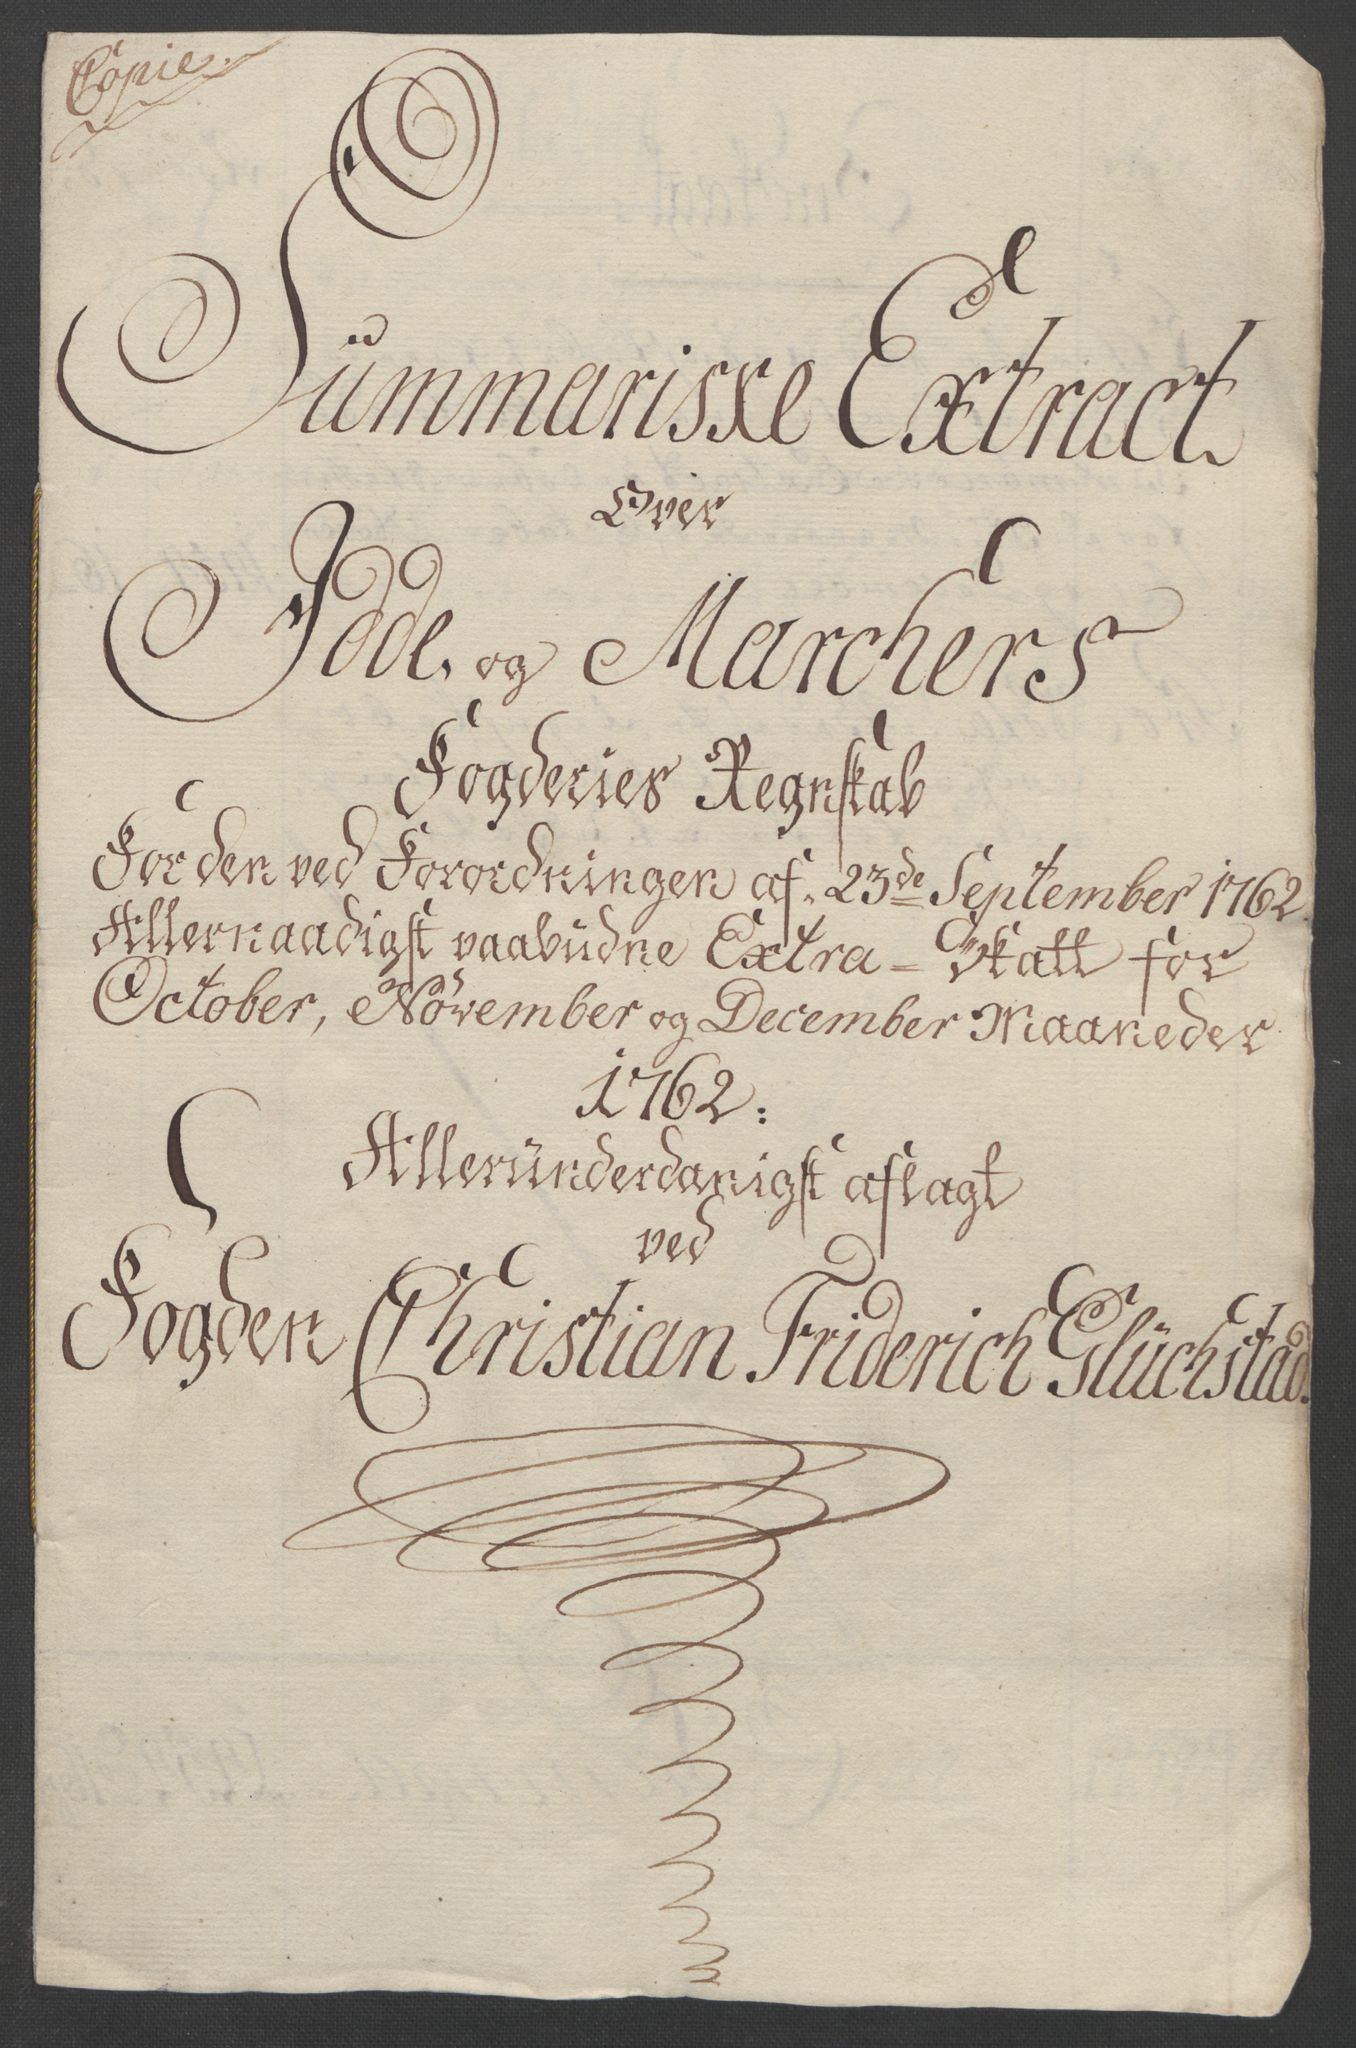 Copie.
Summariske Extract
Over
Idde og Marchers
Fogderies Regnskab
For den ved Forordningen af 23de September 1762
Allernaadigst paabudne Extra-Skatt for
October, November og December Maaneder
1762:
Alleründerdanigst aflagt
ved
Fogden Christian Friderich Glückstad.